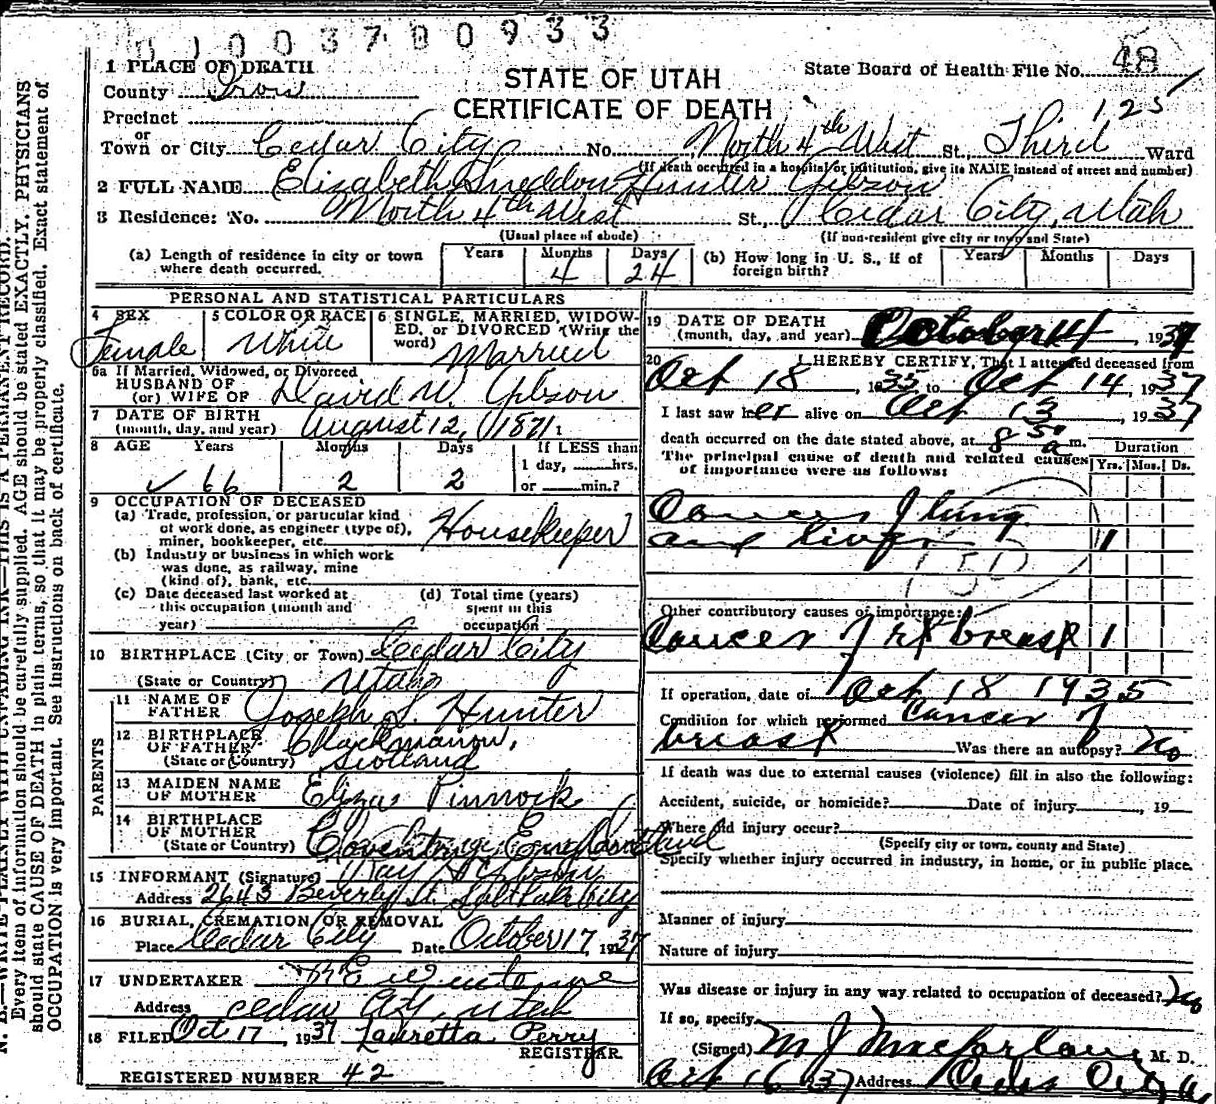 0100378093 3
48
1 PLACE OF DEATH
County Iron
STATE OF UTAH
CERTIFICATE OF DEATH
State Board of Health File No.
125
Precinct
or
Town or City Cedar City No. North 4th West St., Third Ward
(If death occurred in a hospital or institution, give its NAME instead of street and number)
2 FULL NAME Elizabeth Sneddon Hunter Gibson
3 Residence: No. North 4th West St., Cedar City, Utah
(Usual place of abode) (If non-resident give city or town and State)
(a) Length of residence in city or town where death occurred. Years Months 4 Days 24
(b) How long in U. S., if of foreign birth? Years Months Days
PERSONAL AND STATISTICAL PARTICULARS
4 SEX Female
5 COLOR OR RACE White
6 SINGLE, MARRIED, WIDOWED, or DIVORCED (Write the word) Married
6a If Married, Widowed, or Divorced
HUSBAND OF
(or) WIFE OF David W. Gibson
7 DATE OF BIRTH
(month, day, and year) August 12, 1871
8 AGE Years 66 Months 2 Days 2
If LESS than
1 day, hrs.
or min.?
9 OCCUPATION OF DECEASED
(a) Trade, profession, or particular kind
of work done, as engineer (type of),
miner, bookkeeper, etc. Housekeeper
(b) Industry or business in which work
was done, as railway, mine
(kind of), bank, etc.
(c) Date deceased last worked at
this occupation (month and
year)
(d) Total time (years)
spent in this
occupation
10 BIRTHPLACE (City or Town) Cedar City
(State or Country) Utah
PARENTS
11 NAME OF
FATHER Joseph S. Hunter
12 BIRTHPLACE
OF FATHER Clackmanon,
(State or Country) Scotland
13 MAIDEN NAME
OF MOTHER Eliza Pinnock
14 BIRTHPLACE
OF MOTHER
(State or Country) Coventry, England
15 INFORMANT (Signature) Ray Gibson
Address 2643 Beverly St. Salt Lake City
16 BURIAL, CREMATION OR REMOVAL
Place Cedar City Date October 17, 1937
17 UNDERTAKER
Address Cedar City, Utah
18 FILED Oct 17, 1937 Lauretta Perry
REGISTRAR.
REGISTERED NUMBER 42
19 DATE OF DEATH
(month, day, and year) October 14, 1937
20 I HEREBY CERTIFY, That I attended deceased from
Oct 18, 1935 to Oct 14, 1937
I last saw her alive on Oct 13, 1937
death occurred on the date stated above, at 8 50 a m.
The principal cause of death and related causes
of importance were as follows:
Duration
Yrs. Mos. Ds.
Cancer of lung
and liver 1
Other contributory causes of importance:
Cancer of rt breast 1
If operation, date of Oct 18 1935
Condition for which performed Cancer of
breast Was there an autopsy? No
If death was due to external causes (violence) fill in also the following:
Accident, suicide, or homicide? Date of injury , 19
Where did injury occur?
(Specify city or town, county and State)
Specify whether injury occurred in industry, in home, or in public place.
Manner of injury
Nature of injury
Was disease or injury in any way related to occupation of deceased? No
If so, specify
(Signed) M J Macfarlane, M. D.
Oct 16 37 Address Cedar City U
N. B.—WRITE PLAINLY WITH UNFADING INK—THIS IS A PERMANENT RECORD.
Every item of information should be carefully supplied. AGE should be stated EXACTLY. PHYSICIANS
should state CAUSE OF DEATH in plain terms, so that it may be properly classified. Exact statement of
OCCUPATION is very important. See instructions on back of certificate.